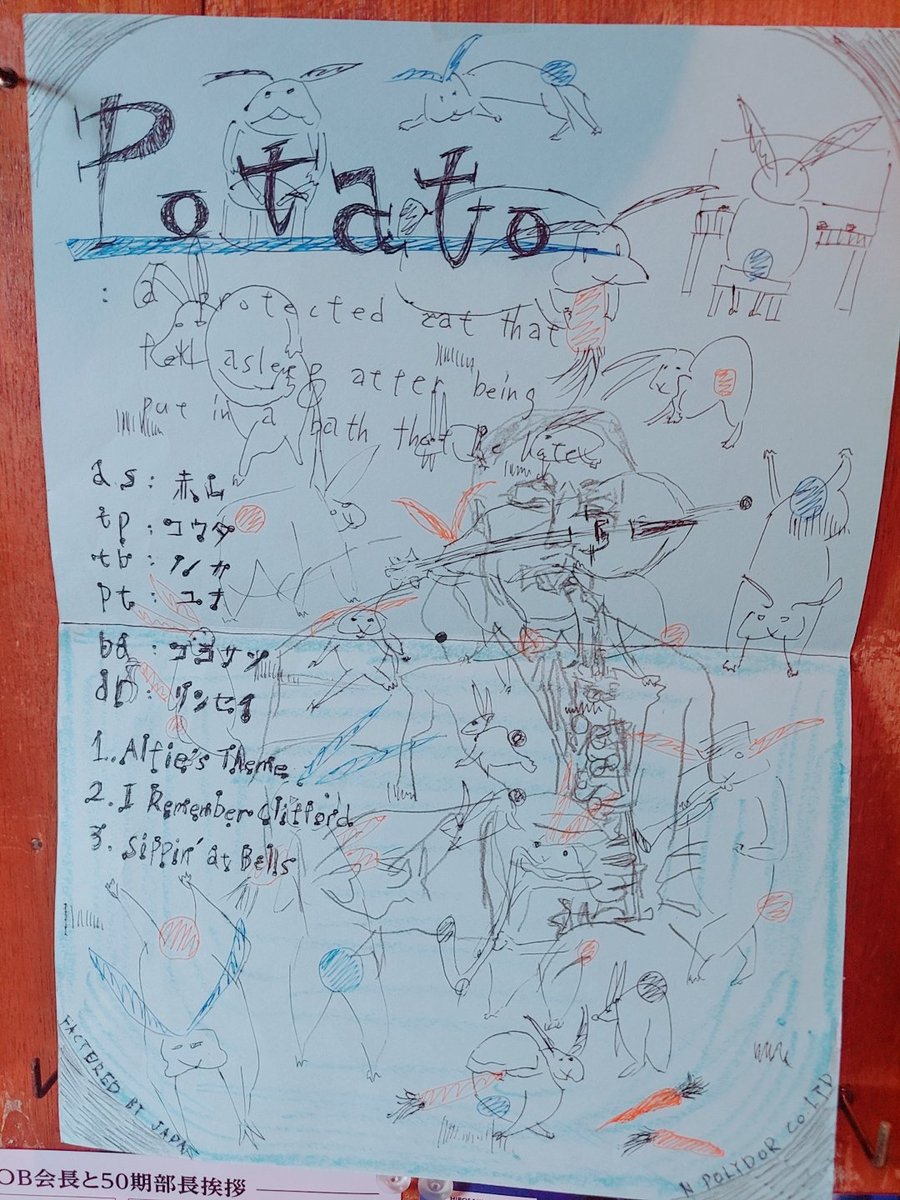 Potato
: a protected rat that
fell asleep after being
put in a bath that he hates
as : 赤山
tp : コウダ
tb : ノノカ
pt : ユナ
ba : コヨサツ
dr : リンセイ
1. Alfie's Theme
2. I Remember Clifford
3. Sippin' at Bells
FACTURED BY JAPA
N POLYDOR CO.LTD
OB会長と50期部長挨拶